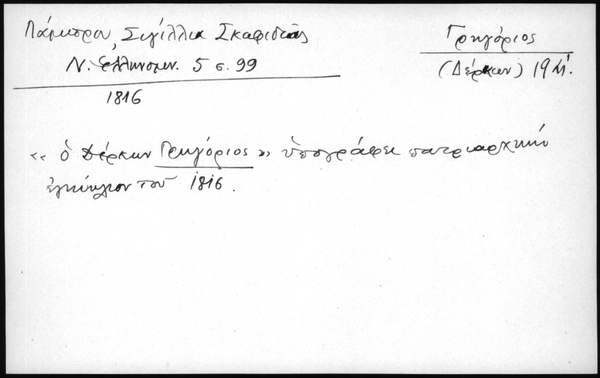 Λάμπρου, Σιγίλλια Σκαφιδιᾶς
Ν. Ἑλληνομν. 5 σ. 99
1816
Γρηγόριος
(Δέρκων) 19
« ὁ Δέρκων Γρηγόριος » ὑπογράφει πατριαρχικὸ
ἐγκύκλιον τοῦ 1816.